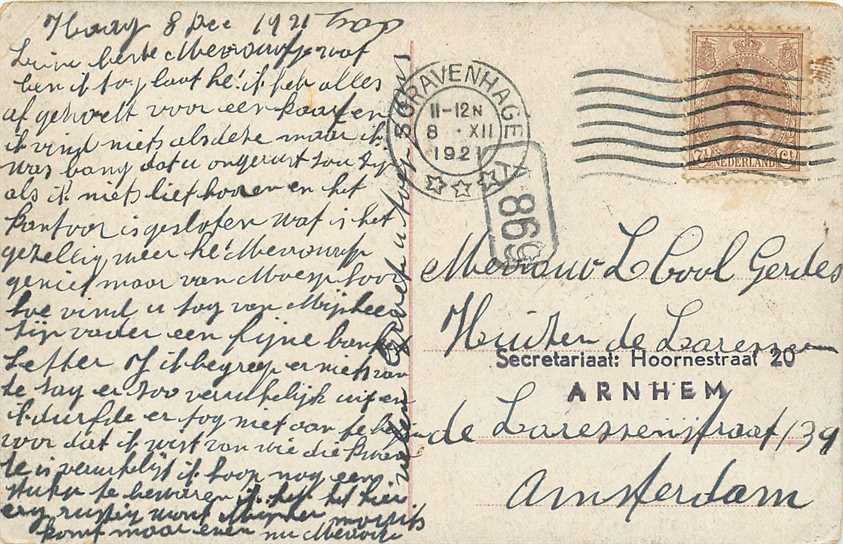 Haag 8 Dec 1921
Lieve beste Mevrouwtje wat
ben ik tog laat he! ik heb alles
af gehoelt voor een kaart en
ik vind niets als deze maar ik
was bang dat u ongerust sou zijn
als ik niets liet hooren en het
kantoor is gesloten wat is het
gezellig weer he! Mevrouwtje
geniet maar van Moesje hoor
hoe vind u tog van Mijnheer
zijn vader een fijne banket
Letter of ik begreep er niets van
te zag er zoo verrukelijk uit en
ik durfde er tog niet aan te
voor dat ik wist van wie die kwam
ze is verrukelijk ik hoop nog een
stukje te bewaren ik heb het hier
erg rustig want Mijnheer
komt maar even nu Mevrouw
'S GRAVENHAGE
11-12 N
8 · XII
1921
A 869
7½ Ct
NEDERLAND
Mevrouw L Cool Gerdes
Huize de Laresse
Secretariaat: Hoornestraat 20
ARNHEM
de Laressenstraat 139
Amsterdam